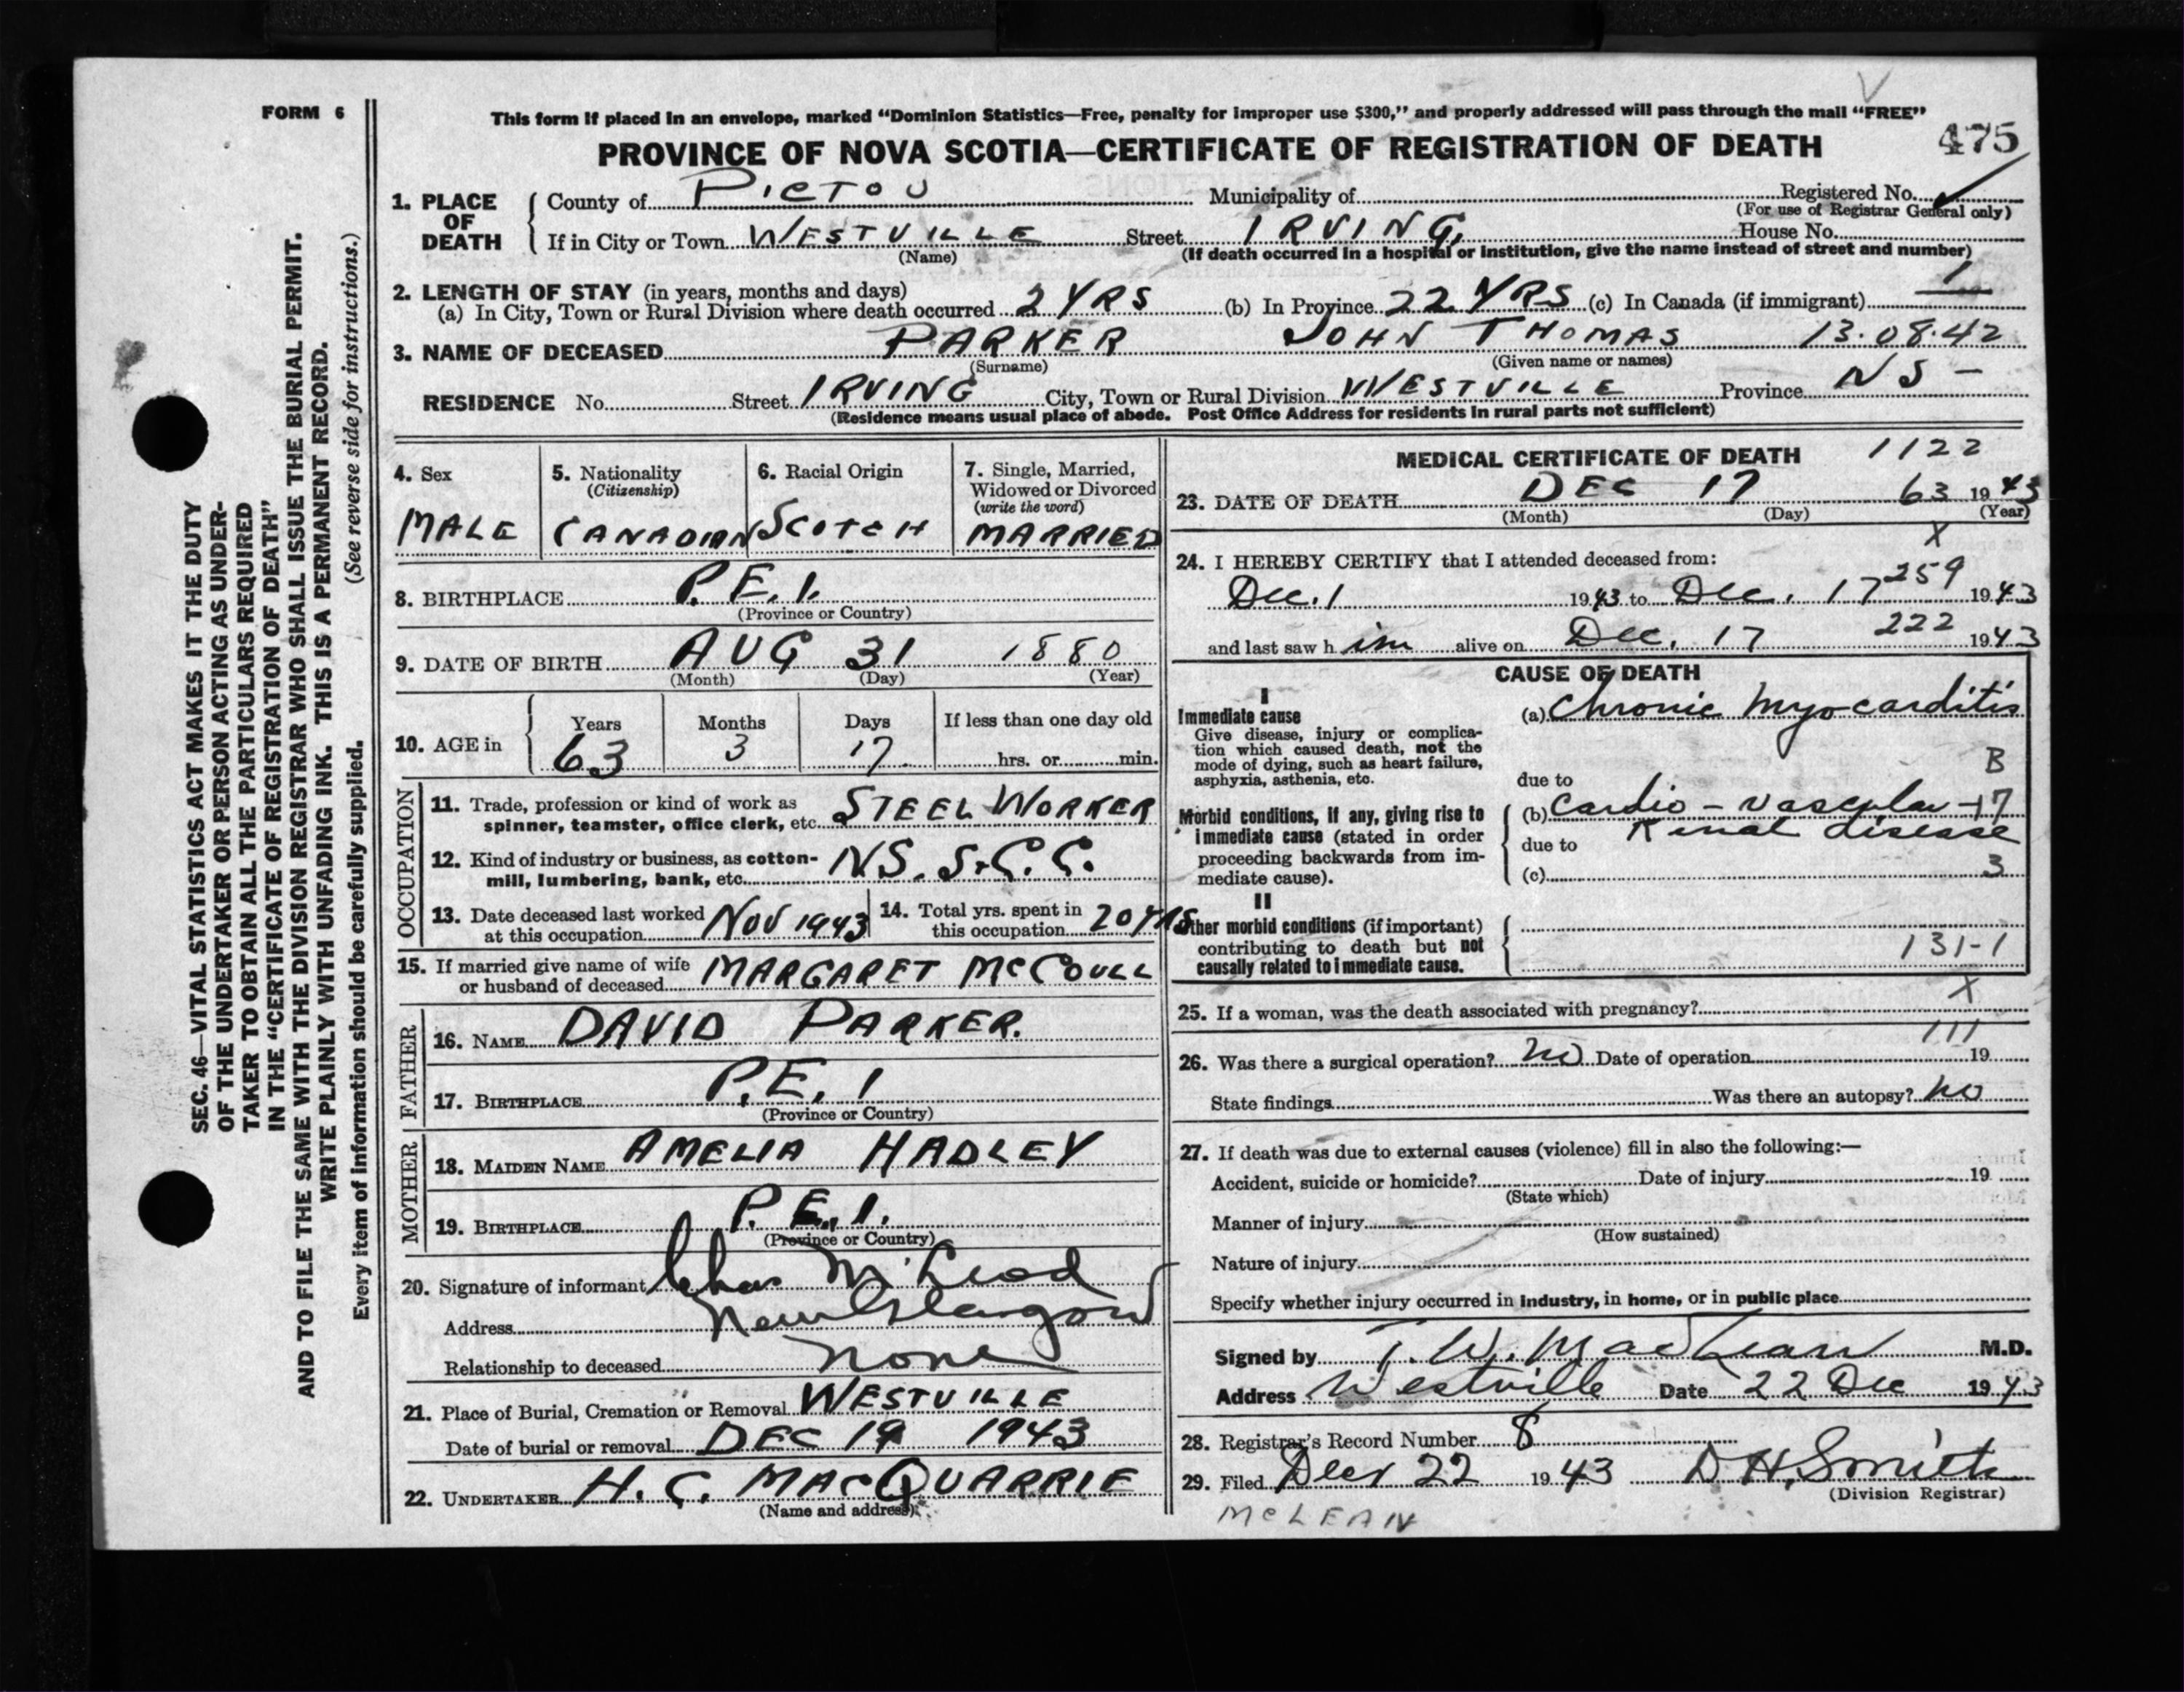 FORM 6
This form if placed in an envelope, marked "Dominion Statistics—Free, penalty for improper use $300," and properly addressed will pass through the mail "FREE"
PROVINCE OF NOVA SCOTIA—CERTIFICATE OF REGISTRATION OF DEATH 475
1. PLACE OF DEATH
County of PICTOU Municipality of Registered No.
(For use of Registrar General only)
If in City or Town WESTVILLE Street IRVING, House No.
(Name) (If death occurred in a hospital or institution, give the name instead of street and number)
2. LENGTH OF STAY (in years, months and days) 1
(a) In City, Town or Rural Division where death occurred 2 YRS (b) In Province 22 YRS (c) In Canada (if immigrant)
3. NAME OF DECEASED PARKER JOHN THOMAS 13.08.42
(Surname) (Given name or names)
RESIDENCE No. Street IRVING City, Town or Rural Division WESTVILLE Province NS -
(Residence means usual place of abode. Post Office Address for residents in rural parts not sufficient)
4. Sex
MALE
5. Nationality
(Citizenship)
CANADIAN
6. Racial Origin
SCOTCH
7. Single, Married,
Widowed or Divorced
(write the word)
MARRIED
8. BIRTHPLACE P.E.I.
(Province or Country)
9. DATE OF BIRTH AUG 31 1880
(Month) (Day) (Year)
10. AGE in Years Months Days If less than one day old
63 3 17 hrs. or min.
OCCUPATION
11. Trade, profession or kind of work as
spinner, teamster, office clerk, etc. STEEL WORKER
12. Kind of industry or business, as cotton-
mill, lumbering, bank, etc. NS. S.&C. C.
13. Date deceased last worked
at this occupation NOV 1943
14. Total yrs. spent in
this occupation 20 YRS
15. If married give name of wife
or husband of deceased MARGARET MCCOULL
FATHER
16. NAME DAVID PARKER.
17. BIRTHPLACE P.E.I
(Province or Country)
MOTHER
18. MAIDEN NAME AMELIA HADLEY
19. BIRTHPLACE P.E.I.
(Province or Country)
20. Signature of informant Chas McLeod
Address New Glasgow
Relationship to deceased none
21. Place of Burial, Cremation or Removal WESTVILLE
Date of burial or removal DEC 19 1943
22. UNDERTAKER H. C. MACQUARRIE
(Name and address)
MEDICAL CERTIFICATE OF DEATH 1122
23. DATE OF DEATH DEC 17 63 1943
(Month) (Day) (Year)
X
24. I HEREBY CERTIFY that I attended deceased from:
259
Dec. 1 1943 to Dec. 17 1943
222
and last saw him alive on Dec. 17 1943
CAUSE OF DEATH
I
Immediate cause
Give disease, injury or complica-
tion which caused death, not the
mode of dying, such as heart failure,
asphyxia, asthenia, etc.
(a) Chronic Myocarditis
B
due to
Morbid conditions, if any, giving rise to
immediate cause (stated in order
proceeding backwards from im-
mediate cause).
(b) Cardio - vascular - 17
Renal disease
due to
(c) 3
II
Other morbid conditions (if important)
contributing to death but not
causally related to immediate cause.
131-1
X
25. If a woman, was the death associated with pregnancy?
111
26. Was there a surgical operation? no Date of operation 19
State findings Was there an autopsy? no
27. If death was due to external causes (violence) fill in also the following:—
Accident, suicide or homicide? Date of injury 19
(State which)
Manner of injury
(How sustained)
Nature of injury
Specify whether injury occurred in industry, in home, or in public place
Signed by T. W. MacLean M.D.
Address Westville Date 22 Dec 1943
28. Registrar's Record Number 8
29. Filed Dec 22 1943 D H, Smith
(Division Registrar)
MCLEAN
SEC. 46—VITAL STATISTICS ACT MAKES IT THE DUTY
OF THE UNDERTAKER OR PERSON ACTING AS UNDER-
TAKER TO OBTAIN ALL THE PARTICULARS REQUIRED
IN THE "CERTIFICATE OF REGISTRATION OF DEATH"
AND TO FILE THE SAME WITH THE DIVISION REGISTRAR WHO SHALL ISSUE THE BURIAL PERMIT.
WRITE PLAINLY WITH UNFADING INK. THIS IS A PERMANENT RECORD.
Every item of information should be carefully supplied. (See reverse side for instructions.)